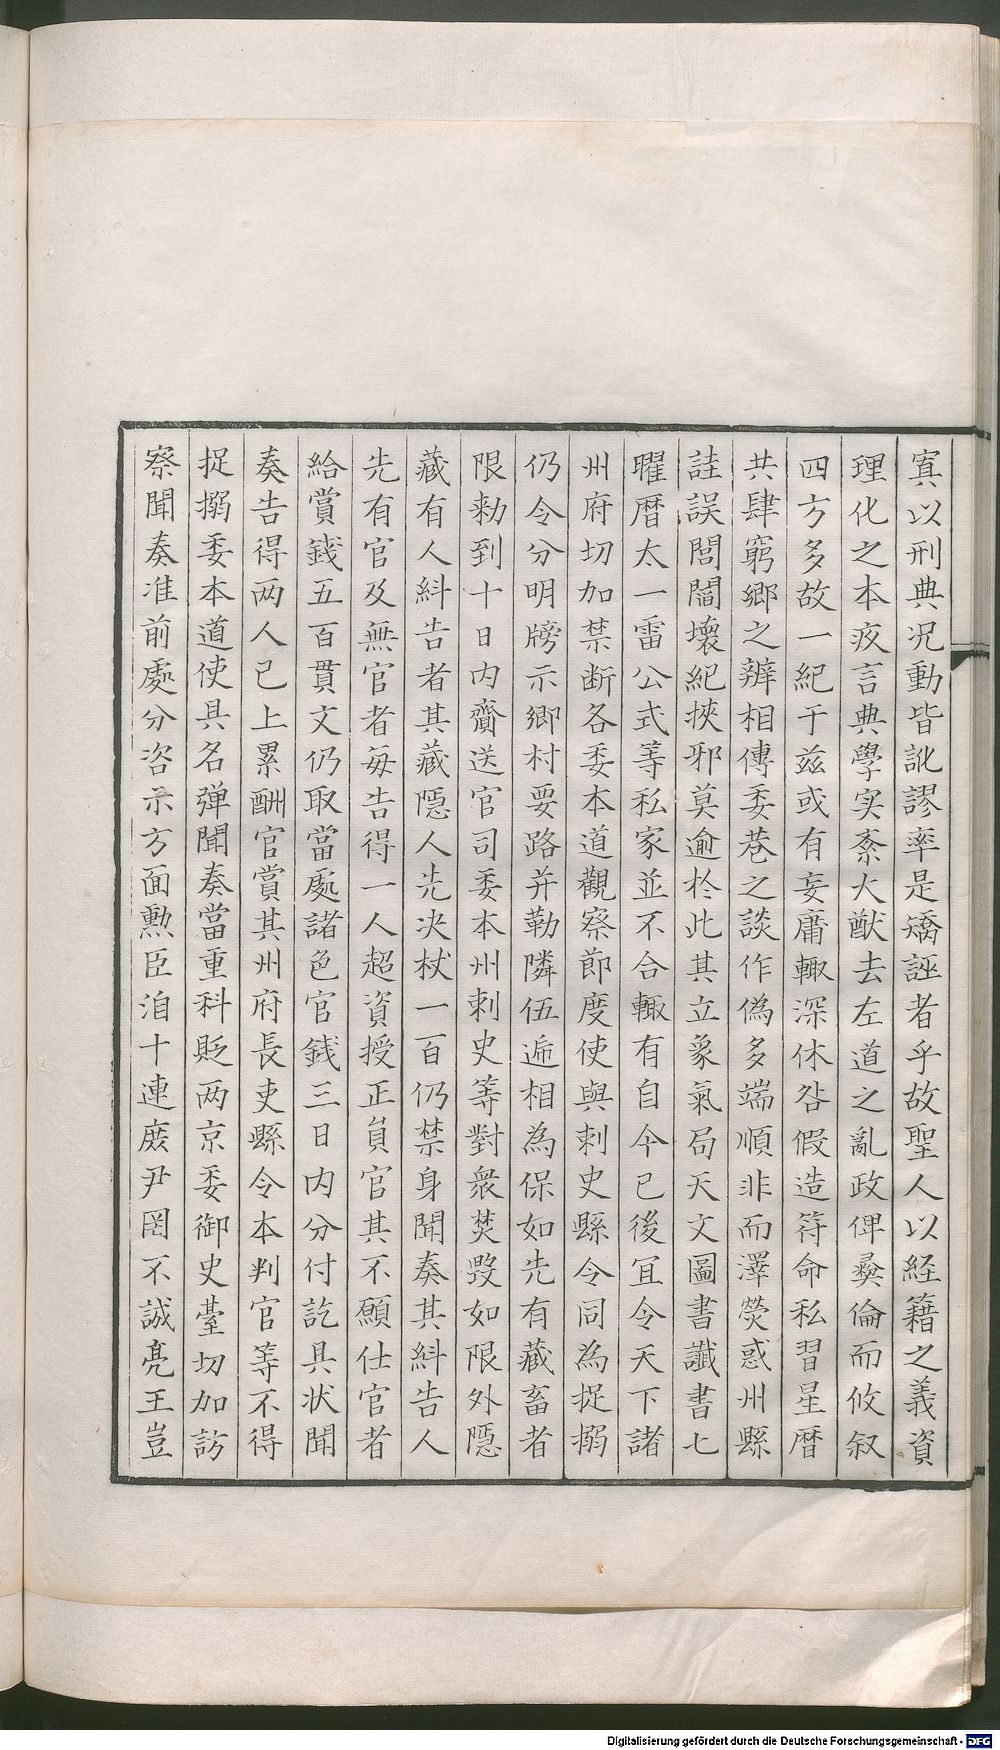 寘以刑典况動皆訛謬率是矯誣者乎故聖人以経籍之義資
理化之本疚言典學实紊大猷去左道之亂政俾彝倫而攸叙
四方多故一紀于兹或有妄庸輙深休咎假造符命私習星曆
共肆窮鄉之辨相傳委巷之談作偽多端順非而澤熒惑州縣
詿誤閭閻壞紀挾邪莫逾於此其立象氣局天文圖書讖書七
曜曆太一雷公式等私家並不合輙有自今已後宜令天下諸
州府切加禁断各委本道觀察節度使與刺史縣令同為捉搦
仍令分明牓示鄉村要路并勒隣伍逓相為保如先有藏畜者
限勑到十日内齎送官司委本州刺史等對衆焚毀如限外隱
藏有人糾告者其藏隱人先决杖一百仍禁身聞奏其糾告人
先有官及無官者每告得一人超資授正員官其不願仕官者
給賞錢五百貫文仍取當處諸色官錢三日内分付訖具状聞
奏告得两人已上累酬官賞其州府長吏縣令本判官等不得
捉搦委本道使具名弾聞奏當重科貶两京委御史臺切加訪
察聞奏准前處分咨示方面勲臣洎十連庶尹罔不誠亮王豈
Digitalisierung gefördert durch die Deutsche Forschungsgemeinschaft - DFG